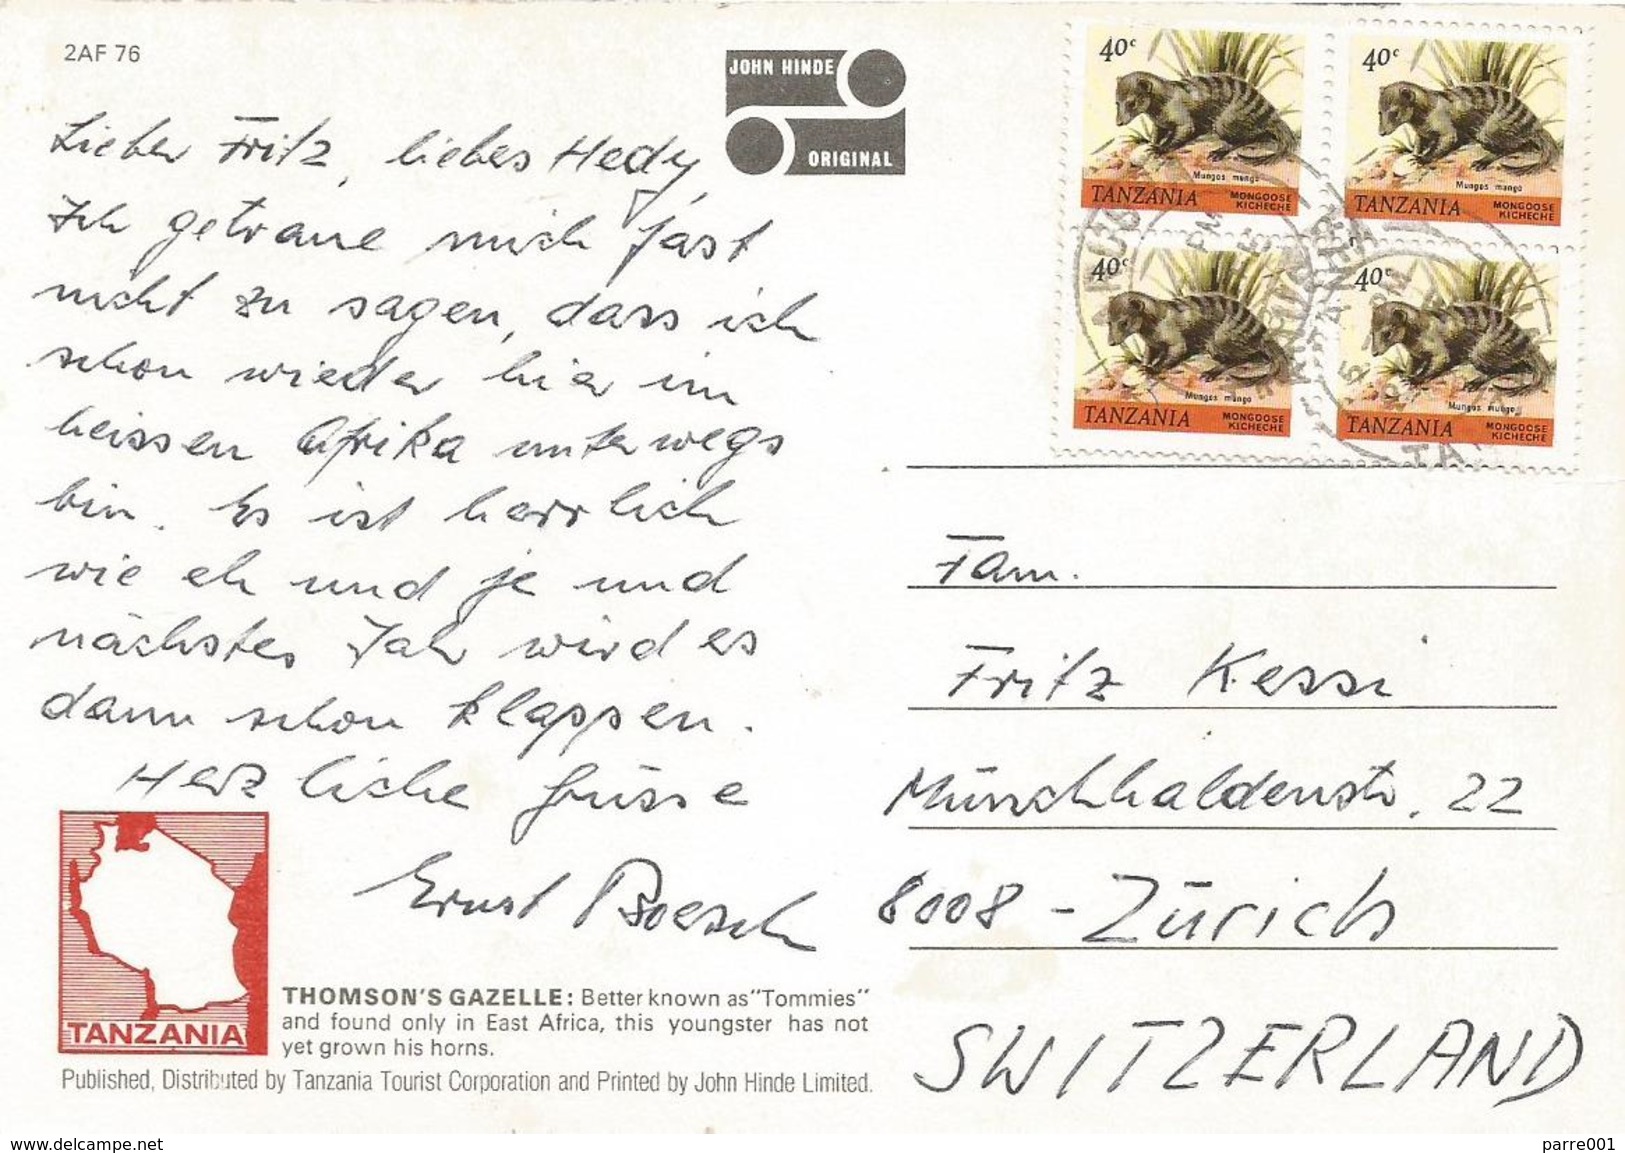 2AF 76
JOHN HINDE
ORIGINAL
Lieber Fritz, liebes Hedy,
Ich getraue mich fast
nicht zu sagen, dass ich
schon wieder hier im
heissen Afrika unterwegs
bin. Es ist herrlich
wie eh und je und
nächstes Jahr wird es
dann schon klappen.
Herzliche Grüsse
Ernst Boesch
40c
Mungos mungo
TANZANIA MONGOOSE
KICHECHE
40c
Mungos mungo
TANZANIA MONGOOSE
KICHECHE
40c
Mungos mungo
TANZANIA MONGOOSE
KICHECHE
40c
Mungos mungo
TANZANIA MONGOOSE
KICHECHE
Fam.
Fritz Kessi
Münchhaldenstr. 22
8008 - Zürich
SWITZERLAND
TANZANIA
THOMSON'S GAZELLE: Better known as "Tommies"
and found only in East Africa, this youngster has not
yet grown his horns.
Published, Distributed by Tanzania Tourist Corporation and Printed by John Hinde Limited.
www.delcampe.net
parre001